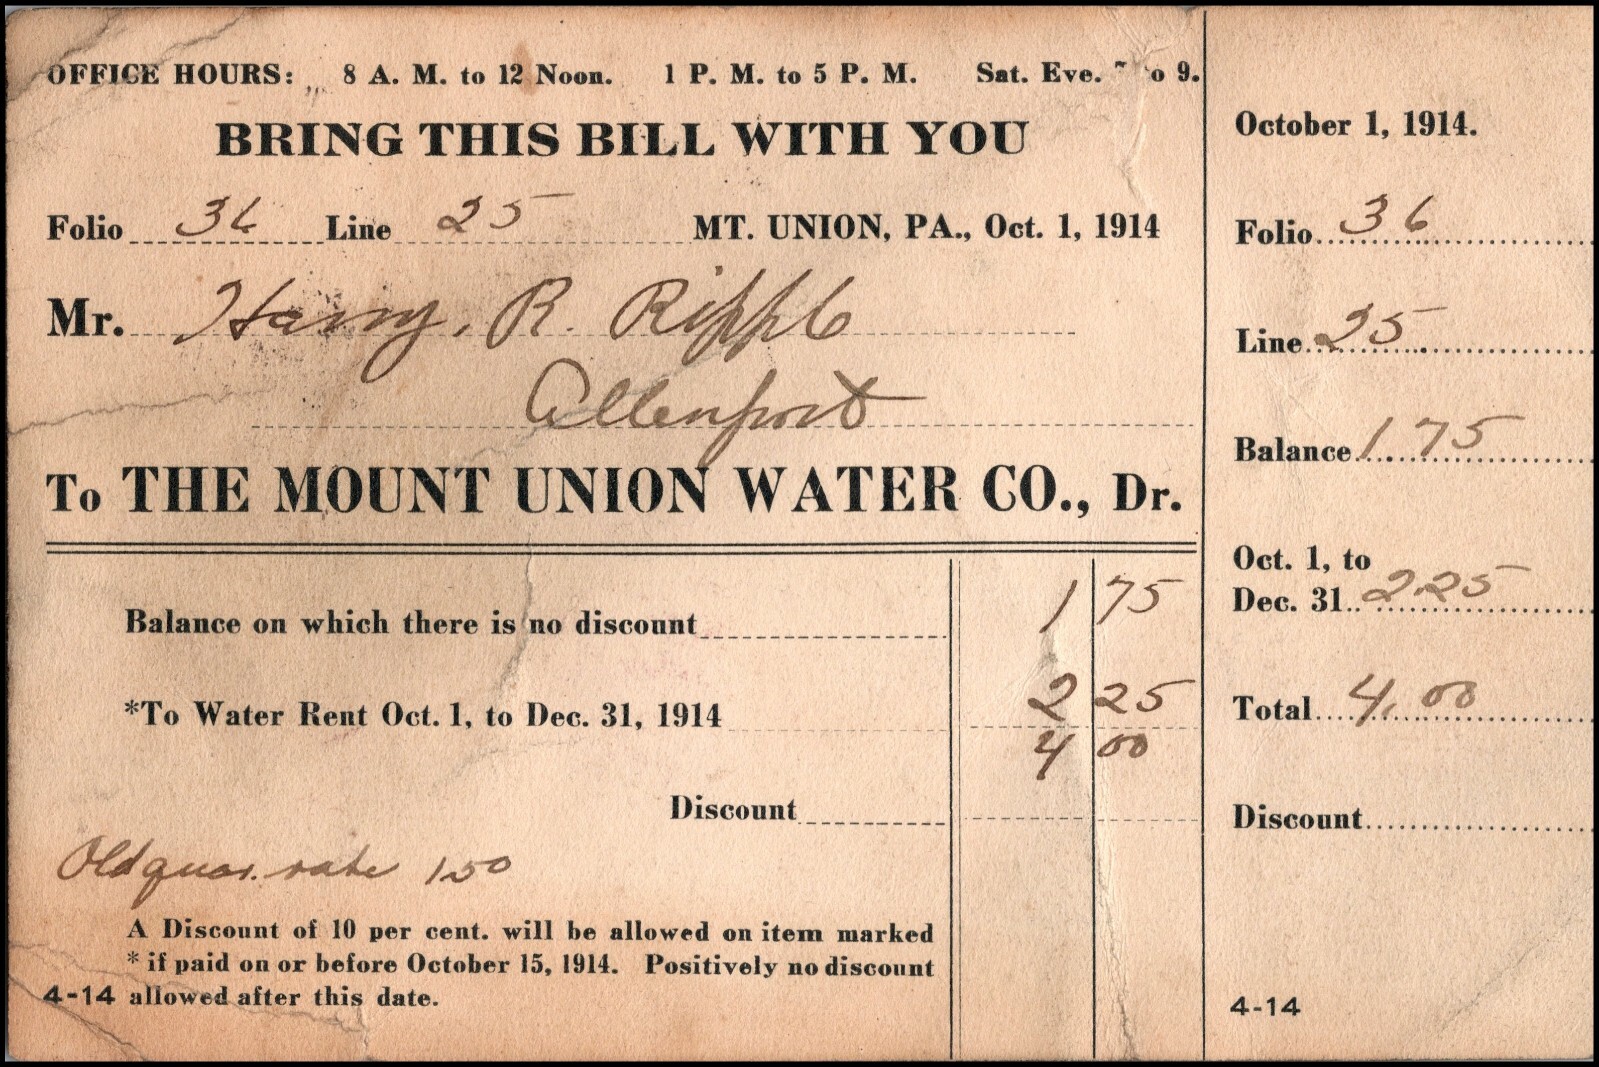 OFFICE HOURS: 8 A. M. to 12 Noon. 1 P. M. to 5 P. M. Sat. Eve. 7 to 9.
BRING THIS BILL WITH YOU
Folio 36 Line 25 MT. UNION, PA., Oct. 1, 1914
Mr. Harry. R. Ripple
Allenport
To THE MOUNT UNION WATER CO., Dr.
Balance on which there is no discount 1 75
*To Water Rent Oct. 1, to Dec. 31, 1914 2 25
4 00
Discount
Old quar. rate 150
A Discount of 10 per cent. will be allowed on item marked
* if paid on or before October 15, 1914. Positively no discount
4-14 allowed after this date.
October 1, 1914.
Folio 36
Line 25
Balance 1.75
Oct. 1, to
Dec. 31 2.25
Total 4.00
Discount
4-14